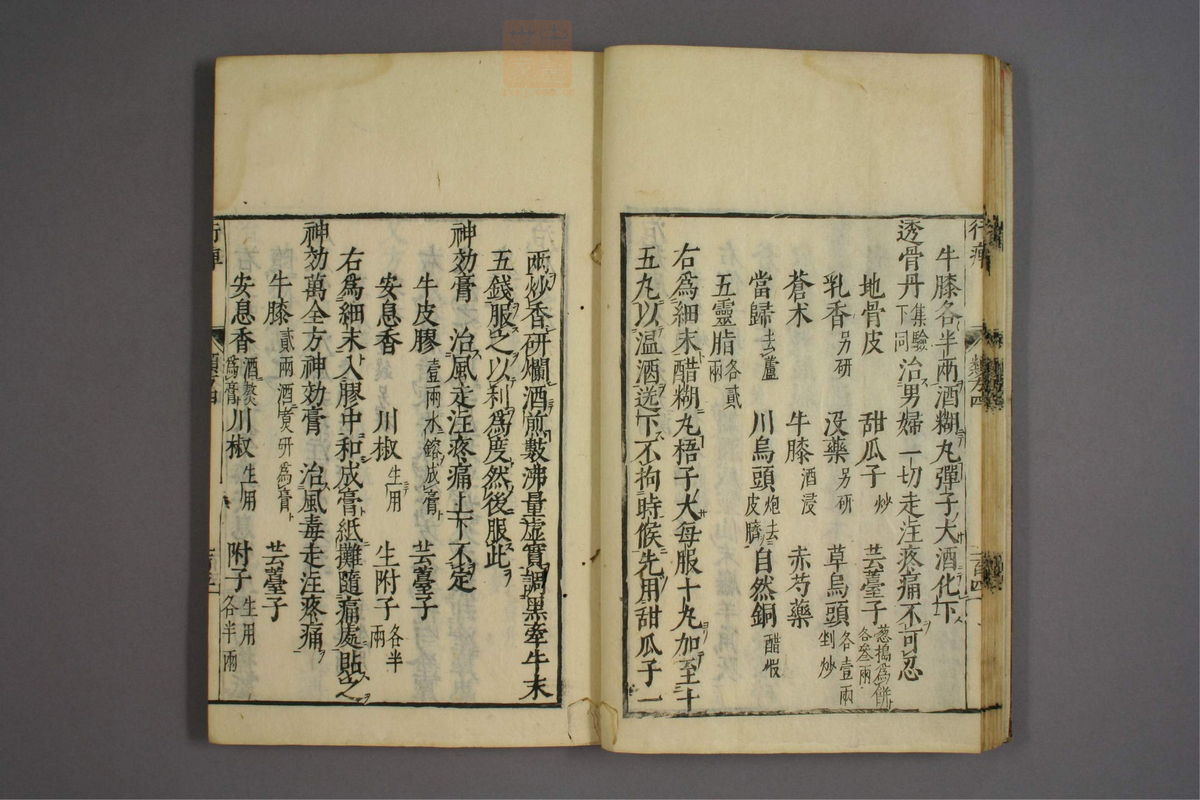 牛膝各半兩酒糊丸彈子大酒化下
透骨丹集驗下同治男婦一切走注疼痛不可忍
地骨皮 甜瓜子炒 芸薹子葱搗為餅各叁兩
乳香另研 没藥另研 草烏頭各壹兩剉炒
蒼术 牛膝酒浸 赤芍藥
當歸去蘆 川烏頭炮去皮臍 自然銅醋煅
五靈脂各貳兩
右為細末醋糊丸梧子大每服十丸加至十
五丸以温酒送下不拘時候先用甜瓜子一
兩炒香研爛酒煎數沸量虛實調黒牽牛末
五錢服之以利為度然後服此
神効膏 治風走注疼痛上下不定
牛皮膠壹兩水鎔成膏 芸薹子
安息香 川椒生用 生附子各半兩
右為細末入膠中和成膏紙攤隨痛處貼之
神効萬全方神効膏 治風毒走注疼痛
牛膝貳兩酒煑研為膏 芸薹子
安息香酒熬為膏 川椒生用 附子生用各半兩